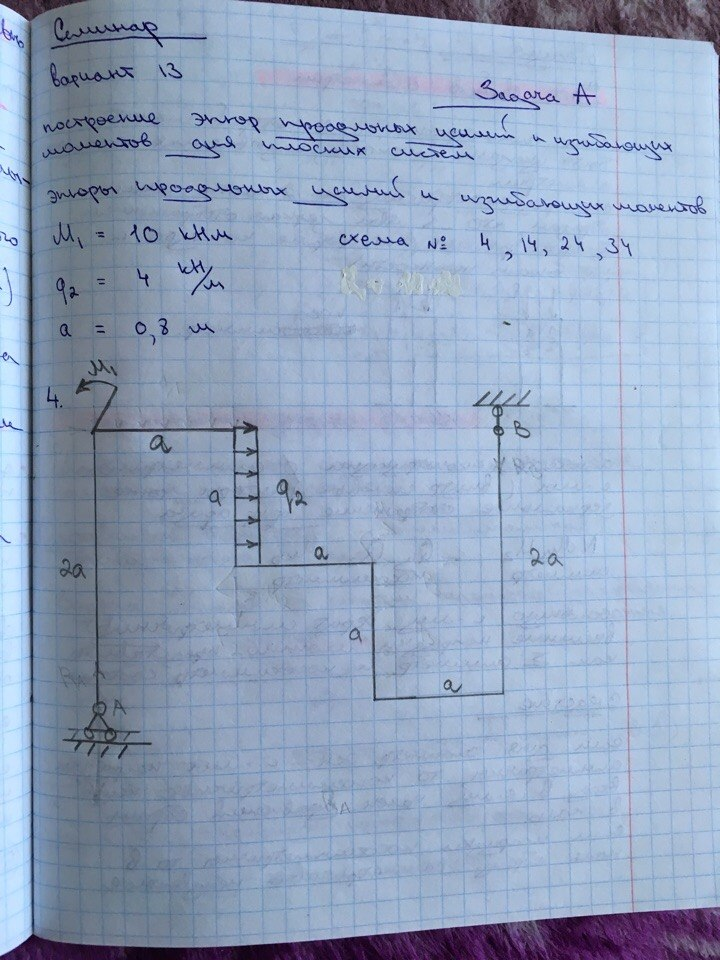 Семинар
вариант 13
Задача А
построение эпюр продольных усилий и изгибающих
моментов для плоских систем
эпюры продольных усилий и изгибающих моментов
M₁ = 10 кНм схема № 4, 14, 24, 34
q₂ = 4 кН/м
a = 0,8 м
M₁
4.
B
a
a
q₂
a
2a
2a
a
a
A
R_A